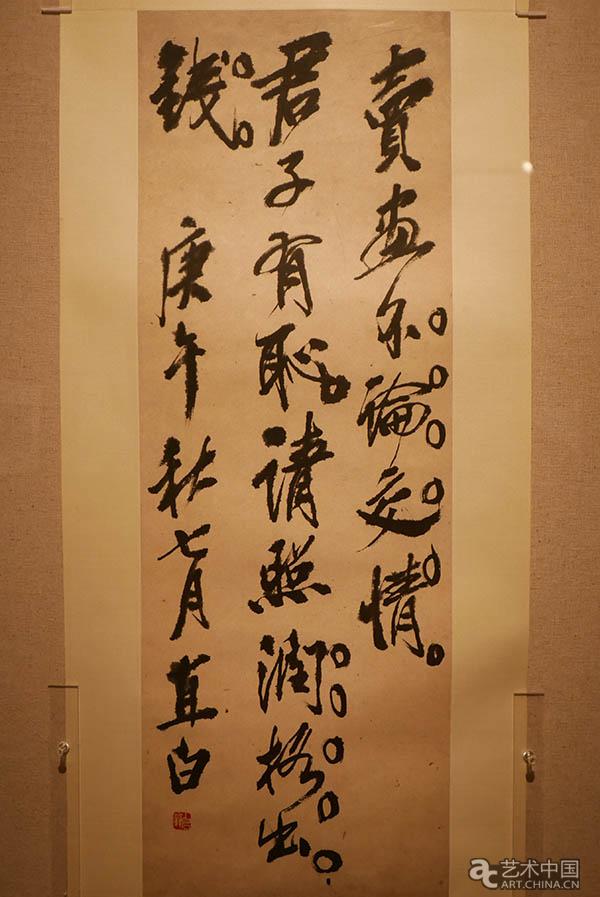 賣畫不論交情。
君子有恥請照潤格出
錢。
庚午秋七月直白
艺术中国
ART.CHINA.CN